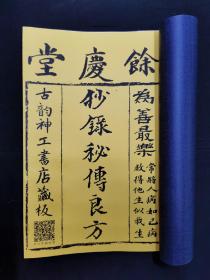 餘慶堂
為善最樂
常將人病如己病
救得他生似我生
抄錄秘傳良方
古韵神工書店藏板